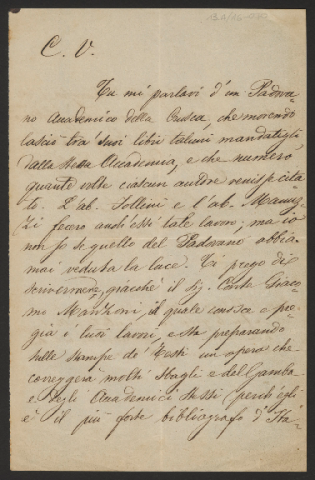 C. V.
Tu mi parlavi d'un Padova-
no Accademico della Crusca, che morendo
lasciò tra' suoi libri taluni mandatigli
dalla stessa Accademia, e che numerò
quante volte ciascun autore venisse cita-
to. L'ab. Follini e l'ab. Manuz-
zi fecero anch'essi tale lavoro; ma io
non so se quello del Padovano abbia
mai veduta la luce. Ti prego di
scrivermene, giacché il Sig. Conte Giaco-
mo Manzoni, il quale conosce e pre-
gia i tuoi lavori, e sta preparando
sulle stampe de' Testi un'opera che
correggerà molti sbagli e del Gamba
e degli Accademici stessi (perch'egli
è il più forte bibliografo d'Ita-